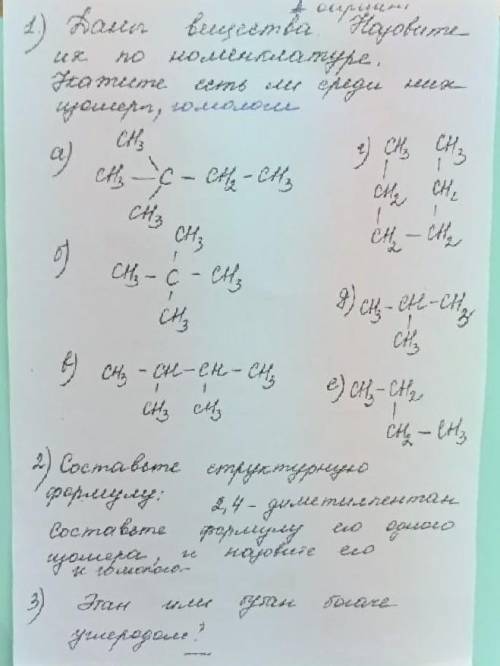 вариант
1.) Даны вещества. Назовите
их по номенклатуре.
Укажите есть ли среди них
изомеры, гомологи
а) CH3
CH3 — C — CH2 — CH3
CH3
б) CH3
CH3 — C — CH3
CH3
в) CH3 — CH — CH — CH3
CH3 CH3
г) CH3 CH3
CH2 CH2
CH2 — CH2
д) CH3 — CH — CH3
CH3
е) CH3 — CH2
CH2 — CH3
2) Составьте структурную
формулу:
2,4 - диметилпентан
Составьте формулу его одного
изомера, и назовите его
и гомолога
3) Этан или бутан богаче
углеродом?